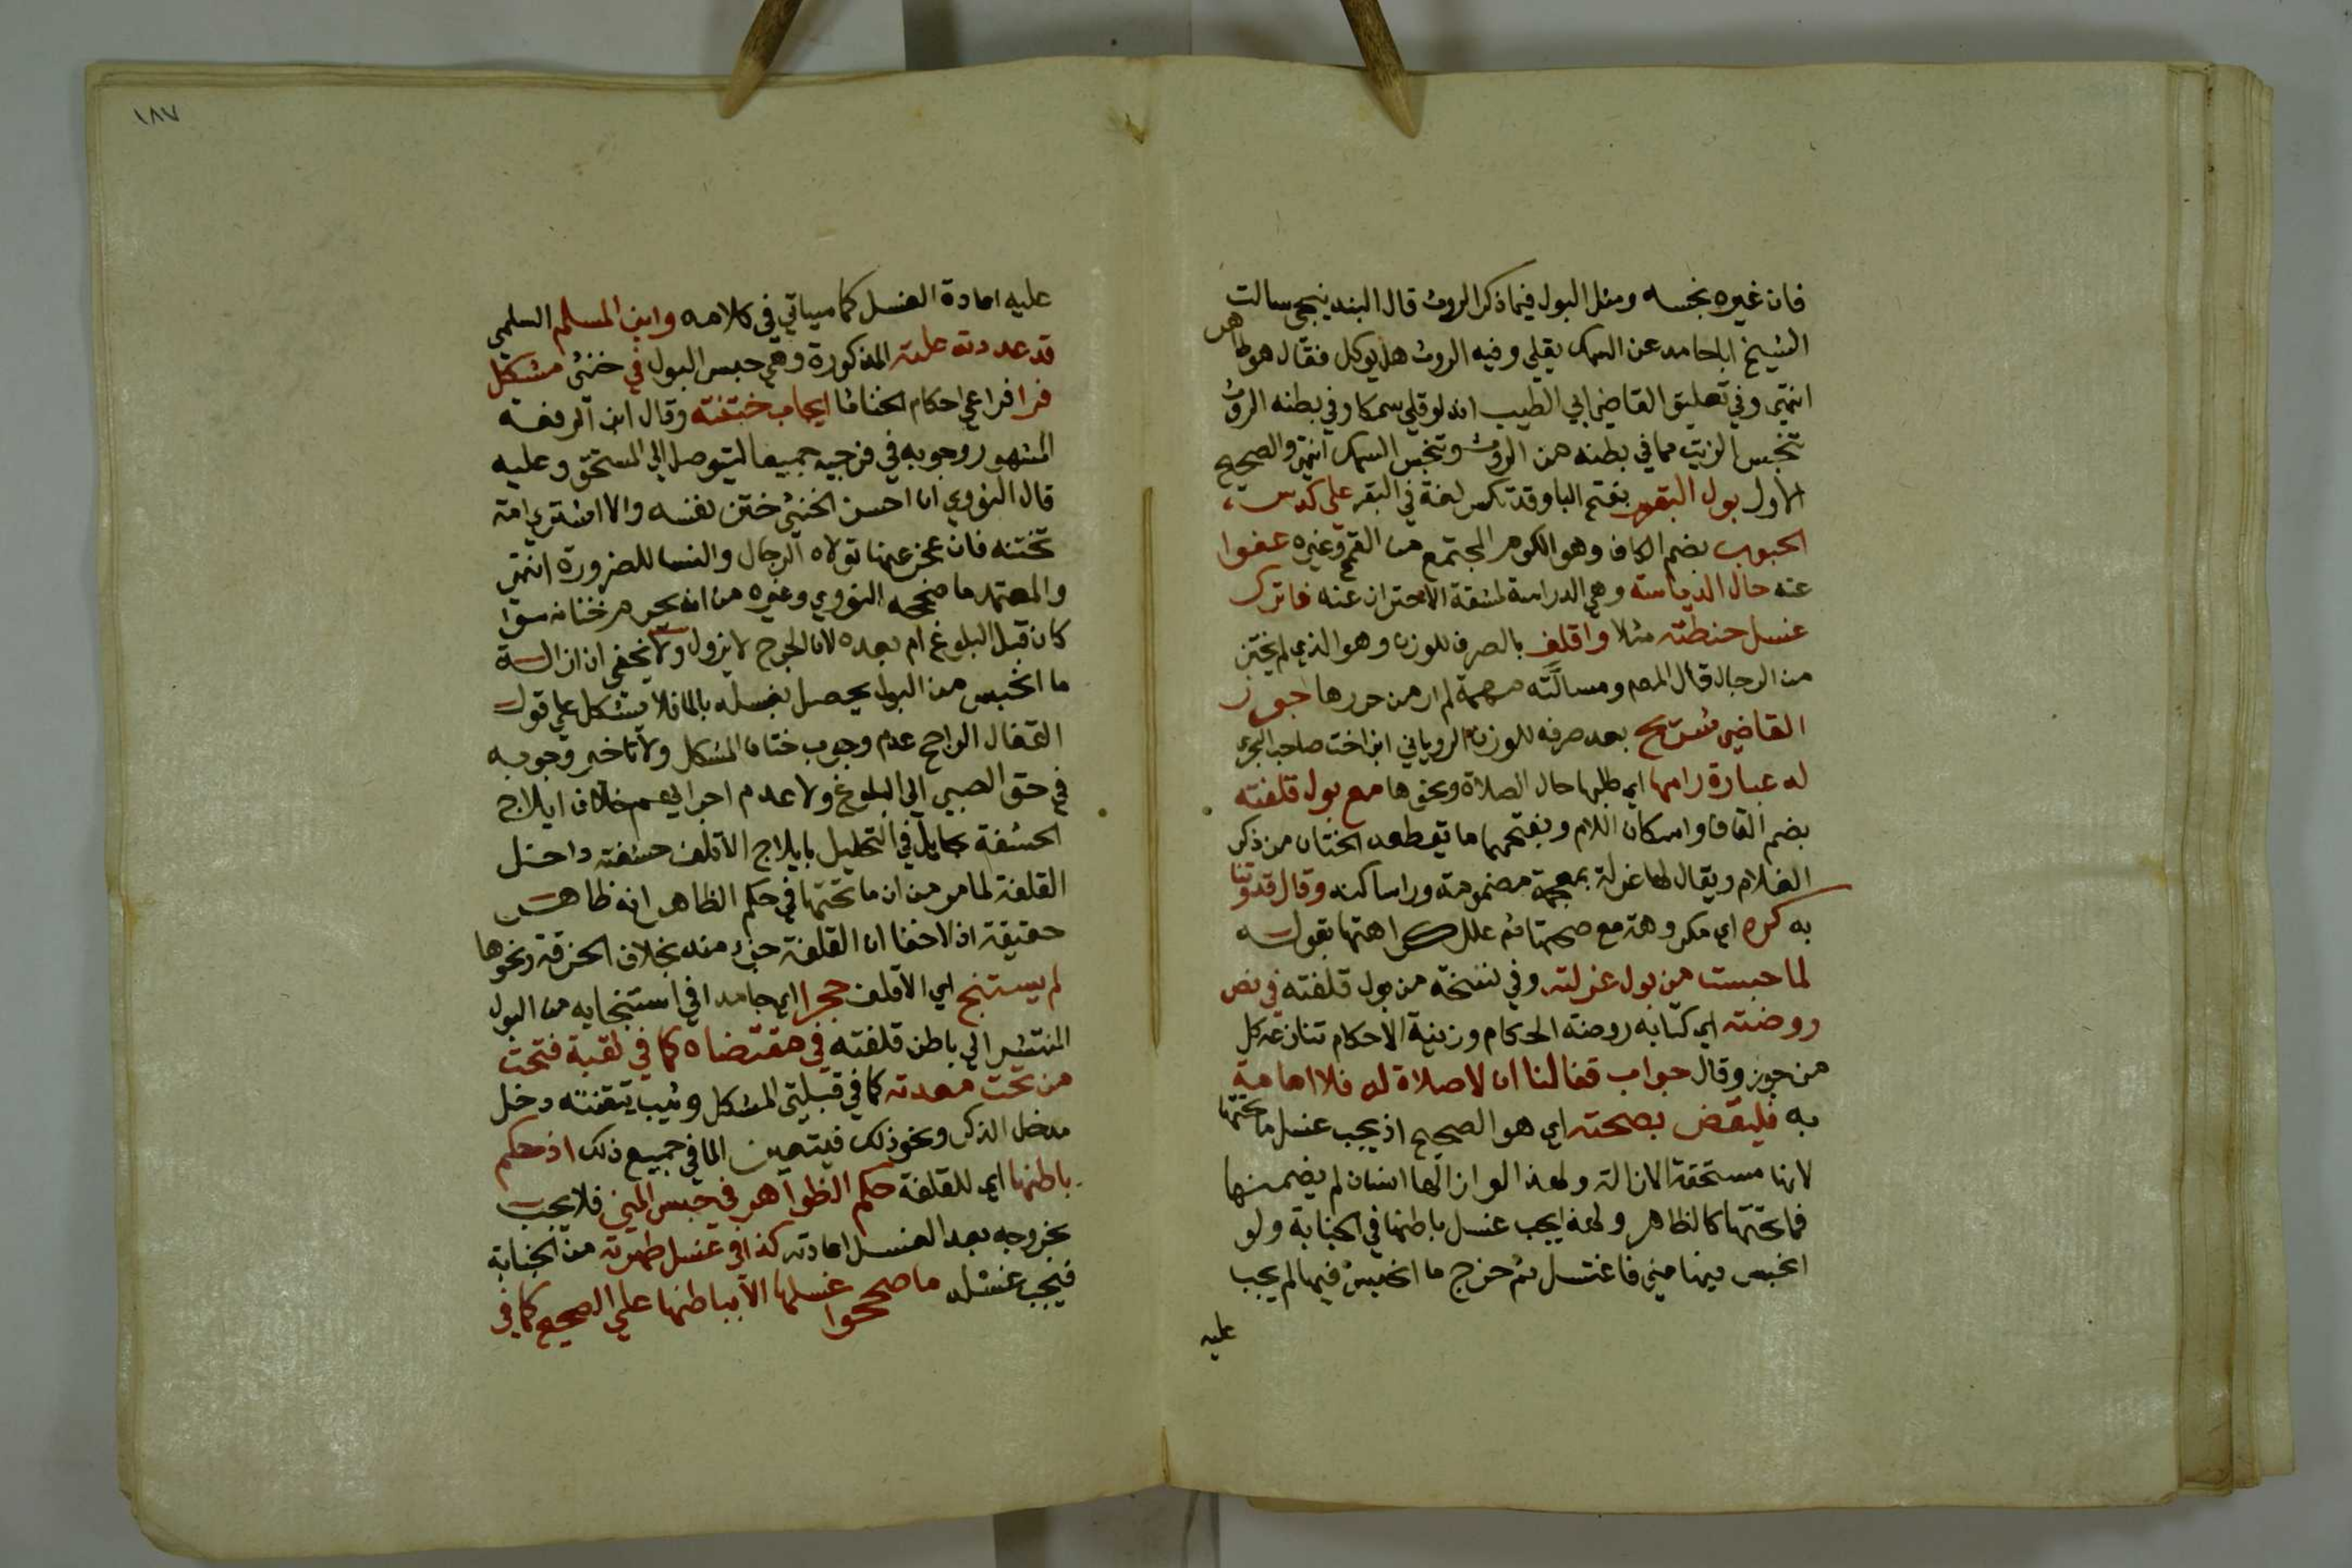 فان غيره نجسه ومثل البول فيما ذكر الروث قال البندينجي سالت
الشيخ ابا حامد عن السمك يقلي وفيه الروث هل يوكل فقال هو طاهر
انتهى وفي تعليق القاضي ابي الطيب انه لو قلي سمكا وفي بطنه الروث
تنجس الزيت مما في بطنه من الروث وتنجس السمك انتهى والصحيح
الاول بول البقر بفتح البا وقد تكسر لغة في البقر علي كدس
الحبوب بضم الكاف وهو الكوم المجتمع من القمح وغيره عفوا
عنه حال الدياسة وهي الدراسة لمشقة الاحتراز عنه فاترك
غسل حنطته مثلا واقلف بالصرف للوزن وهو الذي لم يختن
من الرجال قال المص ومسالته مهمة لم ار من حررها جوز
القاضي شريح بعد صرفه للوزن الروياني ابن اخت صاحب البحر
له عبارة رامها اي طلبها حال الصلاة ونحوها مع بول قلفته
بضم القاف واسكان اللام وبفتحهما ما تقطعه الختان من ذكر
الغلام ويقال لها غرلة بمعجمة مضمومة ورا ساكنه وقال قدوتنا
به كره اي مكروهة مع صحتها ثم علل كراهتها بقوله
لما حبست من بول غرلته وفي نسخة من بول قلفته في نص
روضته اي كتابه روضة الحكام وزينة الاحكام تنازعه كل
من جوز وقال جواب قفالنا ان لا صلاة له فلا امامة
به فليقض بصحته اي هو الصحيح اذ يجب غسل ما تحتها
لانها مستحقة الازالة ولهذا لو ازالها انسان لم يضمنها
فما تحتها كالظاهر ولهذا يجب غسل باطنها في الجنابة ولو
انحبس فيها مني فاغتسل ثم خرج ما انحبس فيها لم يجب
عليه
١٨٧
عليه اعادة الغسل كما سياتي في كلامه وابن المسلم السلمي
قد عددته علته المذكورة وهي حبس البول في خنثى مشكل
فرا فراعي احكام الخناثا ايجاب ختنته وقال ابن الرفعة
المشهور وجوبه في فرجيه جميعا ليتوصل الي المستحق وعليه
قال النووي ان احسن الخنثى ختن نفسه والا اشترى امة
تختنه فان عجز عنها تولاه الرجال والنسا للضرورة انتهى
والمعتمد ما صححه النووي وغيره من انه يحرم ختانه سوا
كان قبل البلوغ ام بعده لان الجرح لا يزول ولا يخفى ان ازالة
ما انحبس من البول يحصل بغسله بالما فلا يشكل علي قول
القفال الراجح عدم وجوب ختان المشكل ولا تاخير وجوبه
في حق الصبي الي البلوغ ولا عدم اجرايهم خلاف ايلاج
الحشفة بحايل في التحليل بايلاج الاقلف حشفته داخل
القلفة لما مر من ان ما تحتها في حكم الظاهر انه ظاهر
حقيقة اذ لا خفا ان القلفة جزء منه بخلاف الخرقة ونحوها
لم يستنج اي الاقلف حجرا اي جامدا في استنجايه من البول
المنتشر الي باطن قلفته في مقتضاه كما في ثقبة فتحت
من تحت معدته كما في قبلتي المشكل وثيب تيقنته دخل
مدخل الذكر ونحو ذلك فيتعين الما في جميع ذلك اذ حكم
باطنها اي للقلفة حكم الظواهر في حبس المني فلا يجب
بخروجه بعد الغسل اعادته كذا في غسل طهرته من الجنابة
فيجب غسله ما صححوا غسلها الا بباطنها علي الصحيح كما في